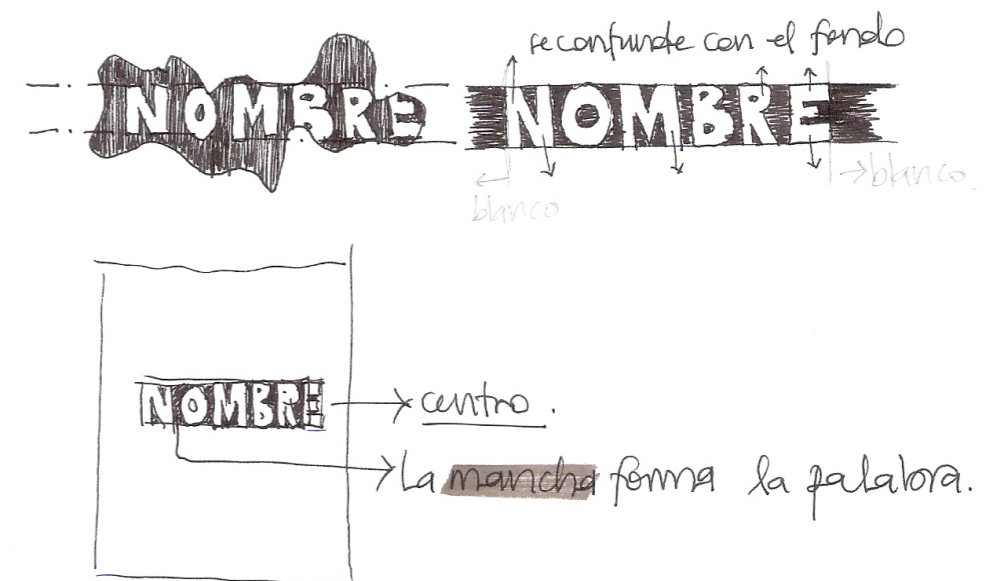 se confunde con el fondo
NOMBRE
NOMBRE
blanco
blanco.
NOMBRE
centro.
La mancha forma la palabra.